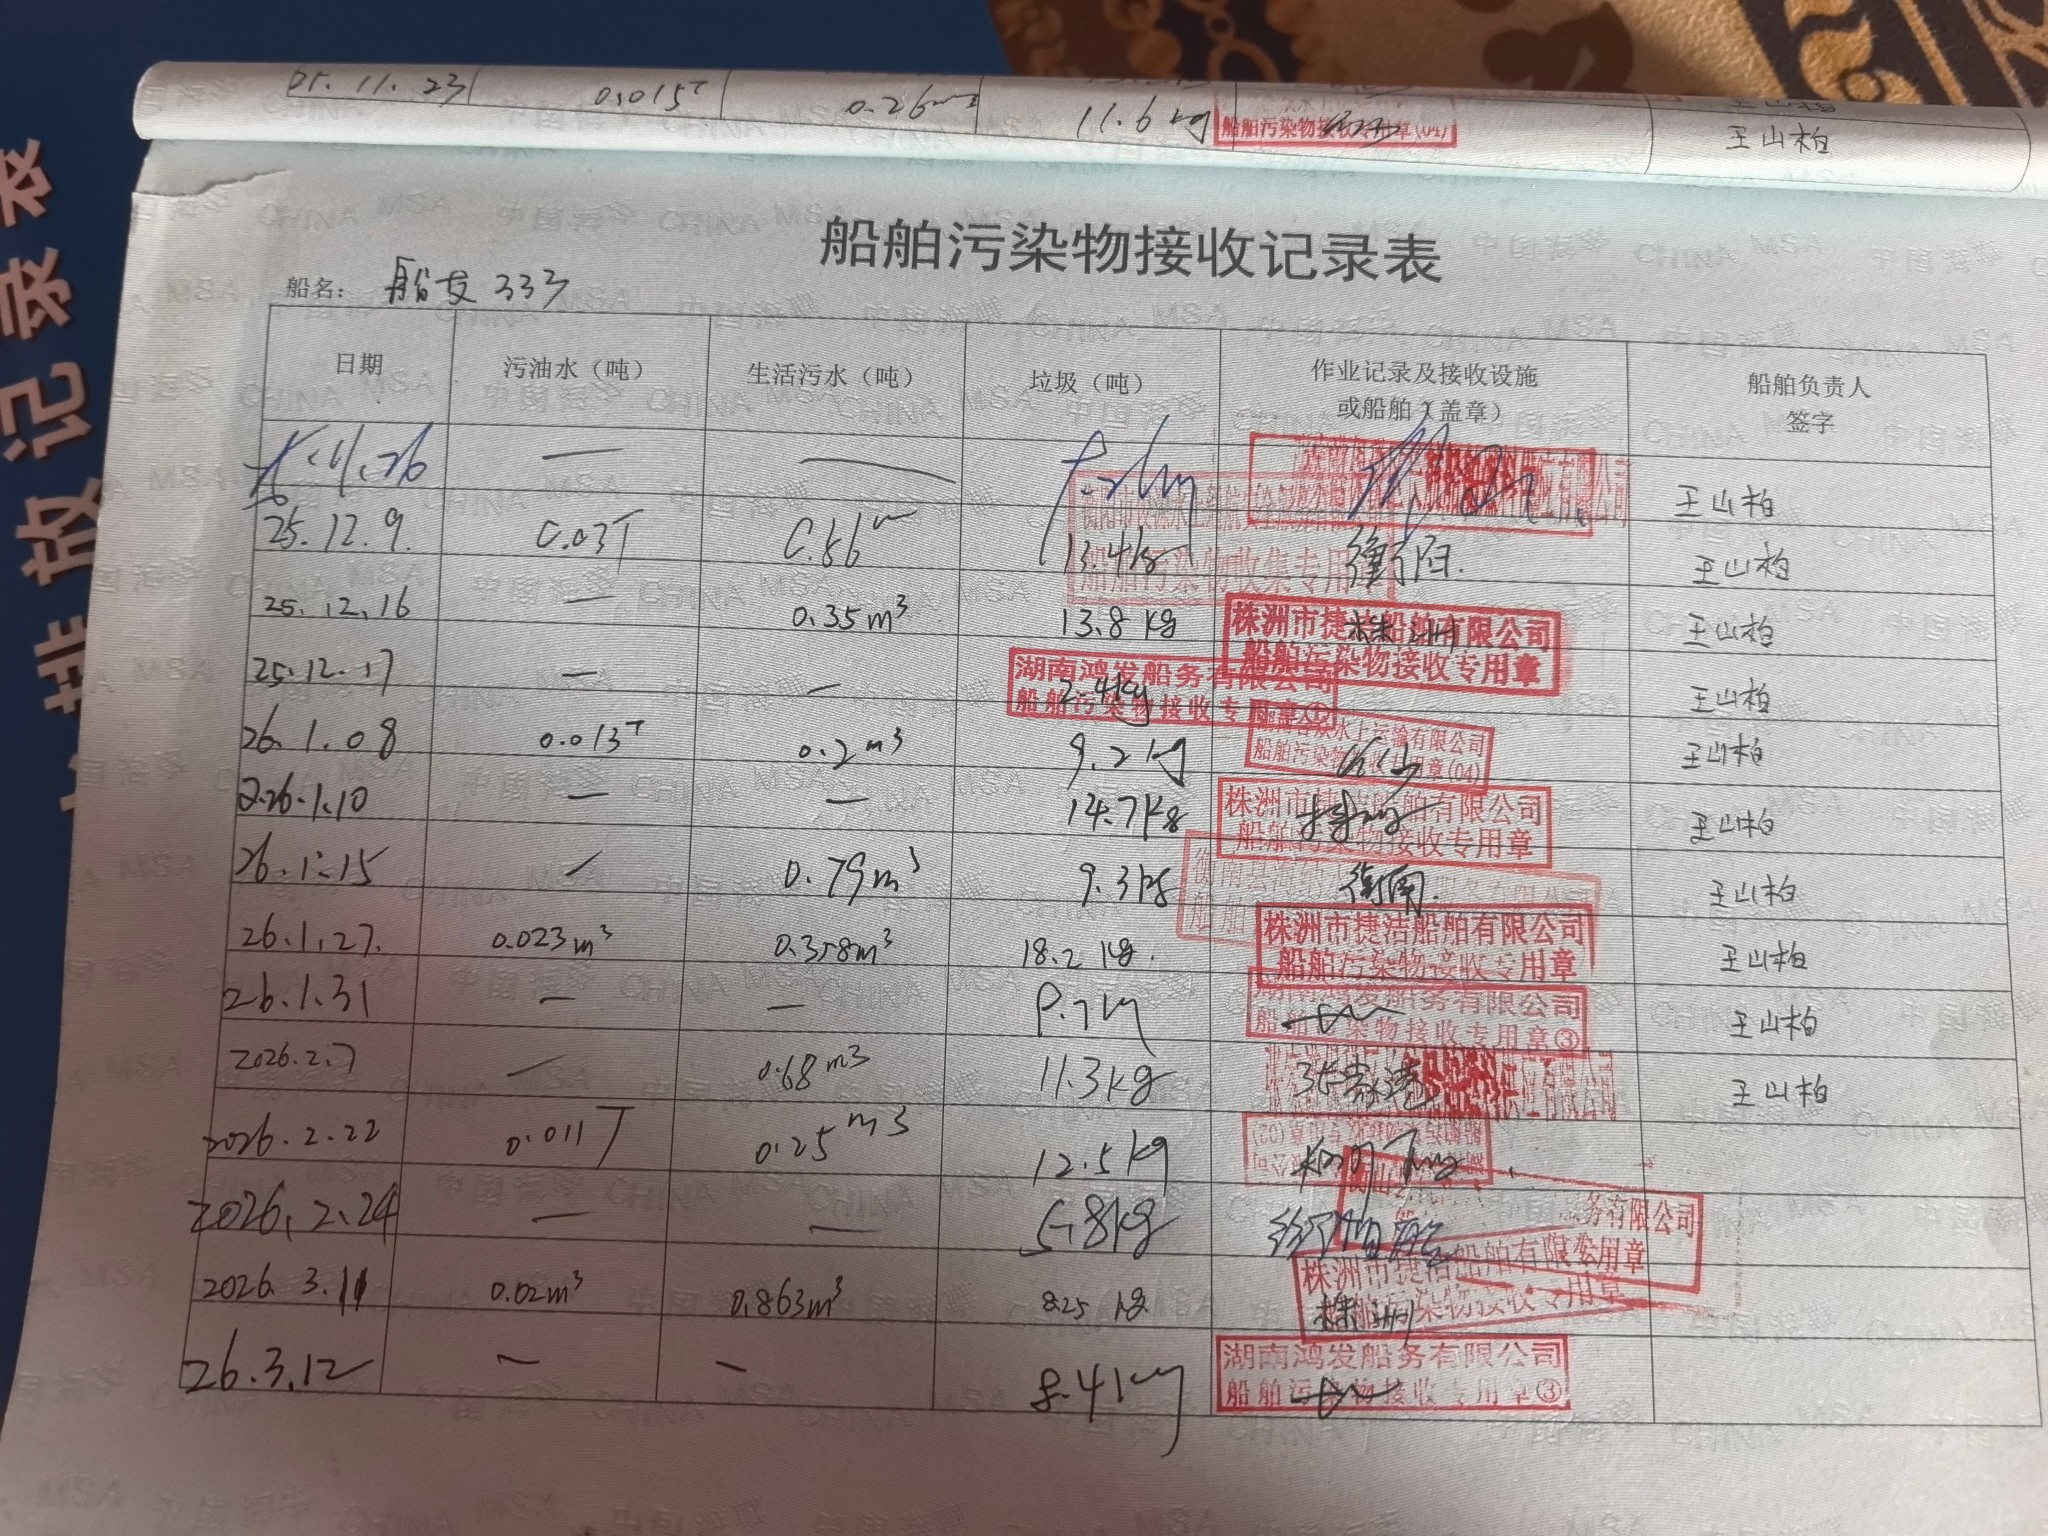 25.11.23 0.015T 0.26m3 11.6kg 船舶污染物接收专用章(04) 王山柏
船舶污染物接收记录表
船名： 船友333
日期 污油水（吨） 生活污水（吨） 垃圾（吨） 作业记录及接收设施或船舶（盖章） 船舶负责人签字
11.26 — — 王山柏
25.12.9. 0.03T 0.56 13.4kg 船舶污染物收集专用 衡阳. 王山柏
25.12.16 — 0.35m³ 13.8kg 株洲市捷洁船舶有限公司 船舶污染物接收专用章 株洲 王山柏
25.12.17 — — 2.4kg 湖南鸿发船务有限公司 船舶污染物接收专用章 王山柏
26.1.08 0.013T 0.2m3 9.2kg 水上运输有限公司 船舶污染物接收专用章(04) 王山柏
2026.1.10 — — 14.7kg 株洲市捷洁船舶有限公司 船舶污染物接收专用章 王山柏
26.1.15 — 0.79m³ 9.3kg 衡南. 王山柏
26.1.27. 0.023m³ 0.358m³ 18.2kg. 株洲市捷洁船舶有限公司 船舶污染物接收专用章 王山柏
26.1.31 — — 湖南鸿发船务有限公司 船舶污染物接收专用章③ 王山柏
2026.2.7 — 0.68m3 11.3kg 王山柏
2026.2.22 0.011T 0.25m3 12.5kg
2026.2.24 — — 5.8kg 务有限公司 用章
2026.3.11 0.02m³ 0.863m³ 8.25kg 株洲市捷洁船舶有限公司 船舶污染物接收专用章 株洲
26.3.12 — — 8.4kg 湖南鸿发船务有限公司 船舶污染物接收专用章③
排放记录表